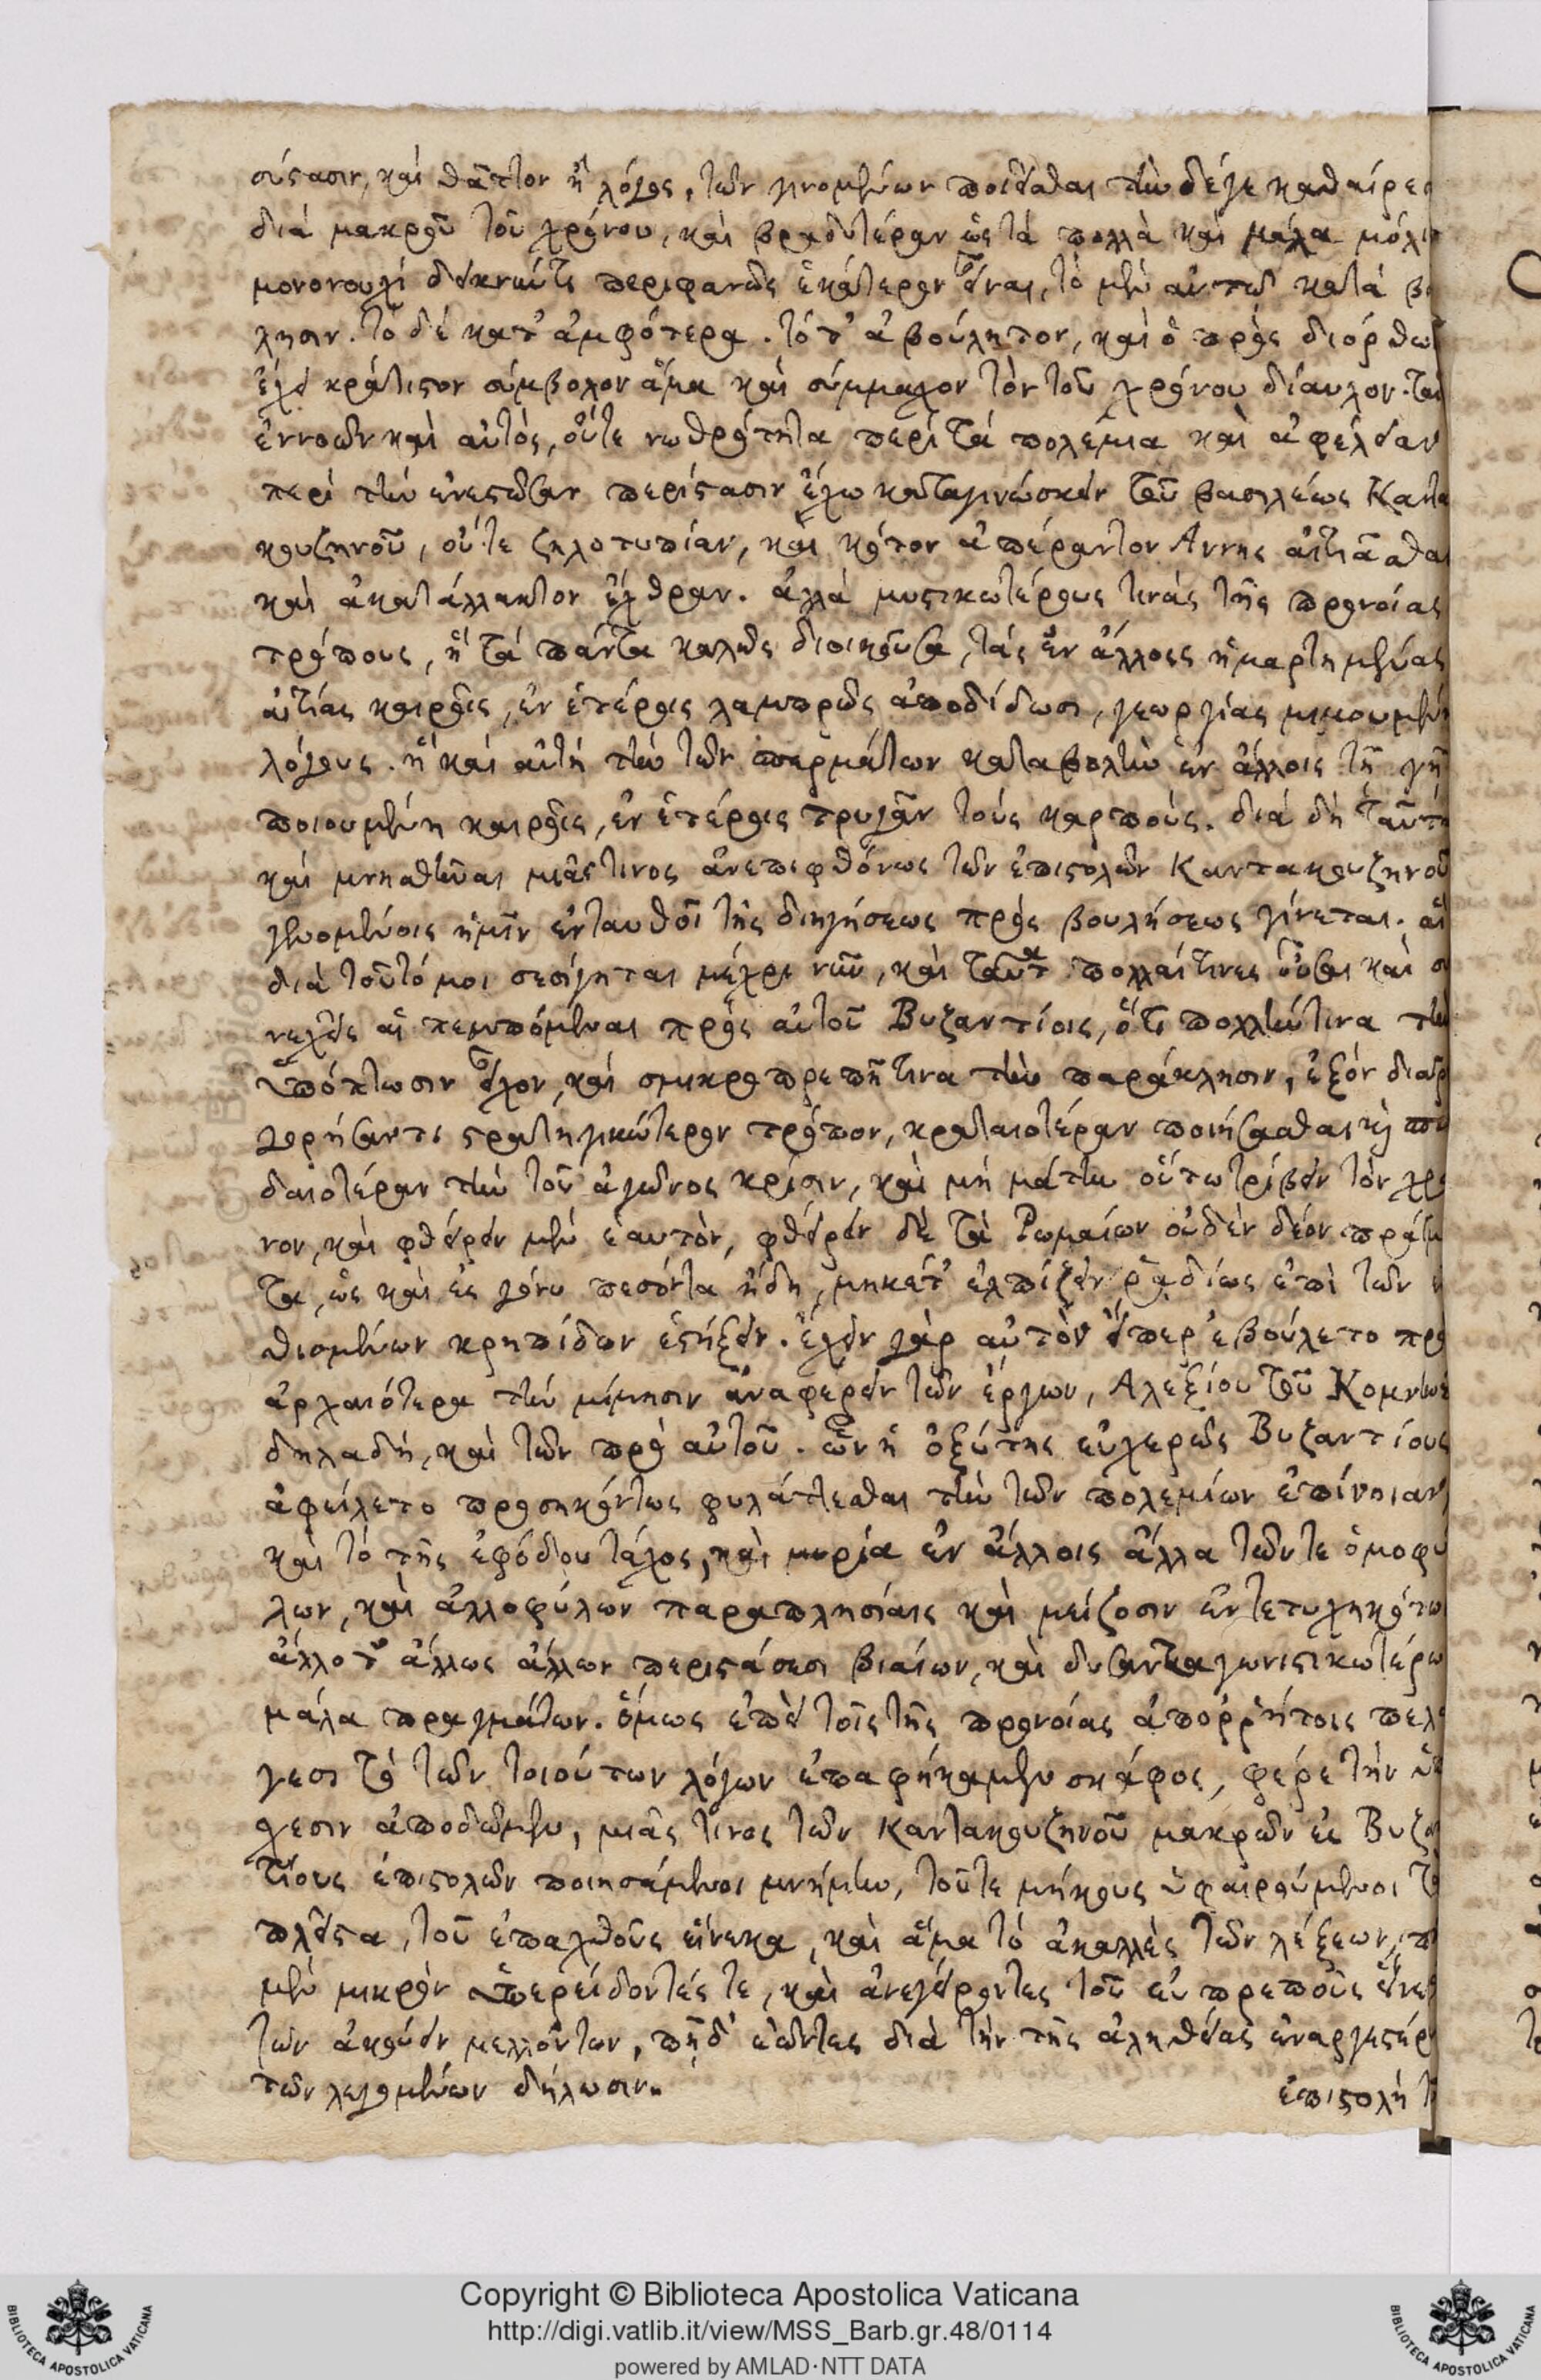 σύστασιν, καὶ θᾶττον ἢ λόγος, τῶν γινομένων ποιεῖσθαι τὴν δέ γε καθαίρεσ
διὰ μακροῦ τοῦ χρόνου, καὶ βραδυτέραν ὡς τὰ πολλὰ καὶ μάλα μόλι
μονονουχὶ περιφανῶς ἑκάτερον εἶναι, τὸ μὲν αὐτῶ κατὰ β
λησιν. τὸ δὲ κατ' ἀμφότερα. τό τ' ἀβούλητον, καὶ ὃ πρὸς διόρθω
ἔχει κράτιστον σύμβολον ἅμα καὶ σύμμαχον τὸν τοῦ χρόνου δίαυλον. ταῦ
ἐννοῶν καὶ αὐτός, οὔτε νωθρότητα περὶ τὰ πολέμια καὶ ἀφέλειαν
περὶ τὴν ἐνεστῶσαν περίστασιν ἔχω καταγινώσκειν τοῦ βασιλέως Καντα
κουζηνοῦ, οὔτε ζηλοτυπίαν, καὶ κότον ἀπέραντον Ἄννης αἰτιᾶσθαι
καὶ ἀκατάλλακτον ἔχθραν. ἀλλὰ μυστικωτέρους τινὰς τῆς προνοίας
τρόπους, ἣ τὰ πάντα καλῶς διοικοῦσα, τὰς ἐν ἄλλοις ἡμαρτημένας
αἰτίας καιροῖς, ἐν ἑτέροις λαμπρῶς ἀποδίδωσι, γεωργίας μιμουμέν
λόγους. ἣ καὶ αὐτὴ τὴν τῶν σπερμάτων καταβολὴν ἐν ἄλλοις τῇ γῇ
ποιουμένη καιροῖς, ἐν ἑτέροις τρυγᾶν τοὺς καρπούς. διὰ δὴ ταῦτ
καὶ μνησθῆναι μιᾶς τινος ἀνεπιφθόνως τῶν ἐπιστολῶν Καντακουζηνοῦ
γενομένοις ἡμῖν ἐνταυθοῖ τῆς διηγήσεως πρὸς βουλήσεως γίνεται. αἳ
διὰ τοῦτό μοι σεσίγηται μέχρι νῦν, καὶ ταῦτα πολλαί τινες οὖσαι καὶ σ
νεχεῖς αἱ πεμπόμεναι πρὸς αὐτοῦ Βυζαντίοις, ὅτι πολλήν τινα τὴν
ὑπόπτωσιν εἶχον, καὶ σμικροπρεπῆ τινα τὴν παράκλησιν, ἐξὸν διατ
χορήσαντι στρατηγικώτερον τρόπον, κραταιοτέραν ποιήσασθαι καὶ σπου
δαιοτέραν τὴν τοῦ ἀγῶνος κρίσιν, καὶ μὴ μάτην οὕτω τρίβειν τὸν χρό
νον, καὶ φθείρειν μὲν ἑαυτὸν, φθείρειν δὲ τὰ Ρωμαίων οὐδὲν δέον πράγμ
τα, ὡς καὶ ἐς γόνυ πεσόντα ἤδη, μηκέτ' ἐλπίζειν ῥᾳδίως ἐπὶ τῶν εἰ
θισμένων κρηπίδων ἑστήξειν. ἔχειν γὰρ αὐτὸν εἴπερ ἐβούλετο πρὸ
ἀρχαιότερα τὴν μίμησιν ἀναφέρειν τῶν ἔργων, Ἀλεξίου τοῦ Κομνηνοῦ
δηλαδή, καὶ τῶν πρὸ αὐτοῦ. ὧν ἡ ὀξύτης εὐχερῶς Βυζαντίους
ἀφείλετο προσηκόντως φυλάττεσθαι τὴν τῶν πολεμίων ἐπίνοιαν
καὶ τὸ τῆς ἐφόδου τάχος, καὶ μυρία ἐν ἄλλοις ἄλλα τῶν τε ὁμοφύ
λων, καὶ ἀλλοφύλων παραπλησίαις καὶ μείζοσιν ἐντετυχηκότω
ἄλλοτ' ἄλλως ἄλλων περιστάσεσι βιαίων, καὶ δυσανταγωνιστικωτέρω
μάλα πραγμάτων. ὅμως ἐπεὶ τοῖς τῆς προνοίας ἀπορρήτοις πελά
γεσι τὸ τῶν τοιούτων λόγων ἐπαφήκαμεν σκάφος, φέρε τὴν ὑπό
σχεσιν ἀποδῶμεν, μιᾶς τινος τῶν Καντακουζηνοῦ μακρῶν ἐς Βυζα
τίους ἐπιστολῶν ποιησάμενοι μνήμην, τοῦ τε μήκους ὑφαιρούμενοι τὰ
πλεῖστα, τοῦ ἐπαχθοῦς εἵνεκα, καὶ ἅμα τὸ ἀκαλλὲς τῶν λέξεων, π
μὲν μικρὸν ὑπερείδοντές τε, καὶ ἀνεγείροντες τοῦ εὐπρεποῦς εἵνεκ
τῶν ἀκούειν μελλόντων, πῆ δ' ἐῶντες διὰ τὴν τῆς ἀληθείας ἐναργεστέρ
τῶν λεγομένων δήλωσιν.
ἐπιστολὴ
Copyright © Biblioteca Apostolica Vaticana
http://digi.vatlib.it/view/MSS_Barb.gr.48/0114
powered by AMLAD·NTT DATA
BIBLIOTECA APOSTOLICA VATICANA
BIBLIOTECA APOSTOLICA VATICANA